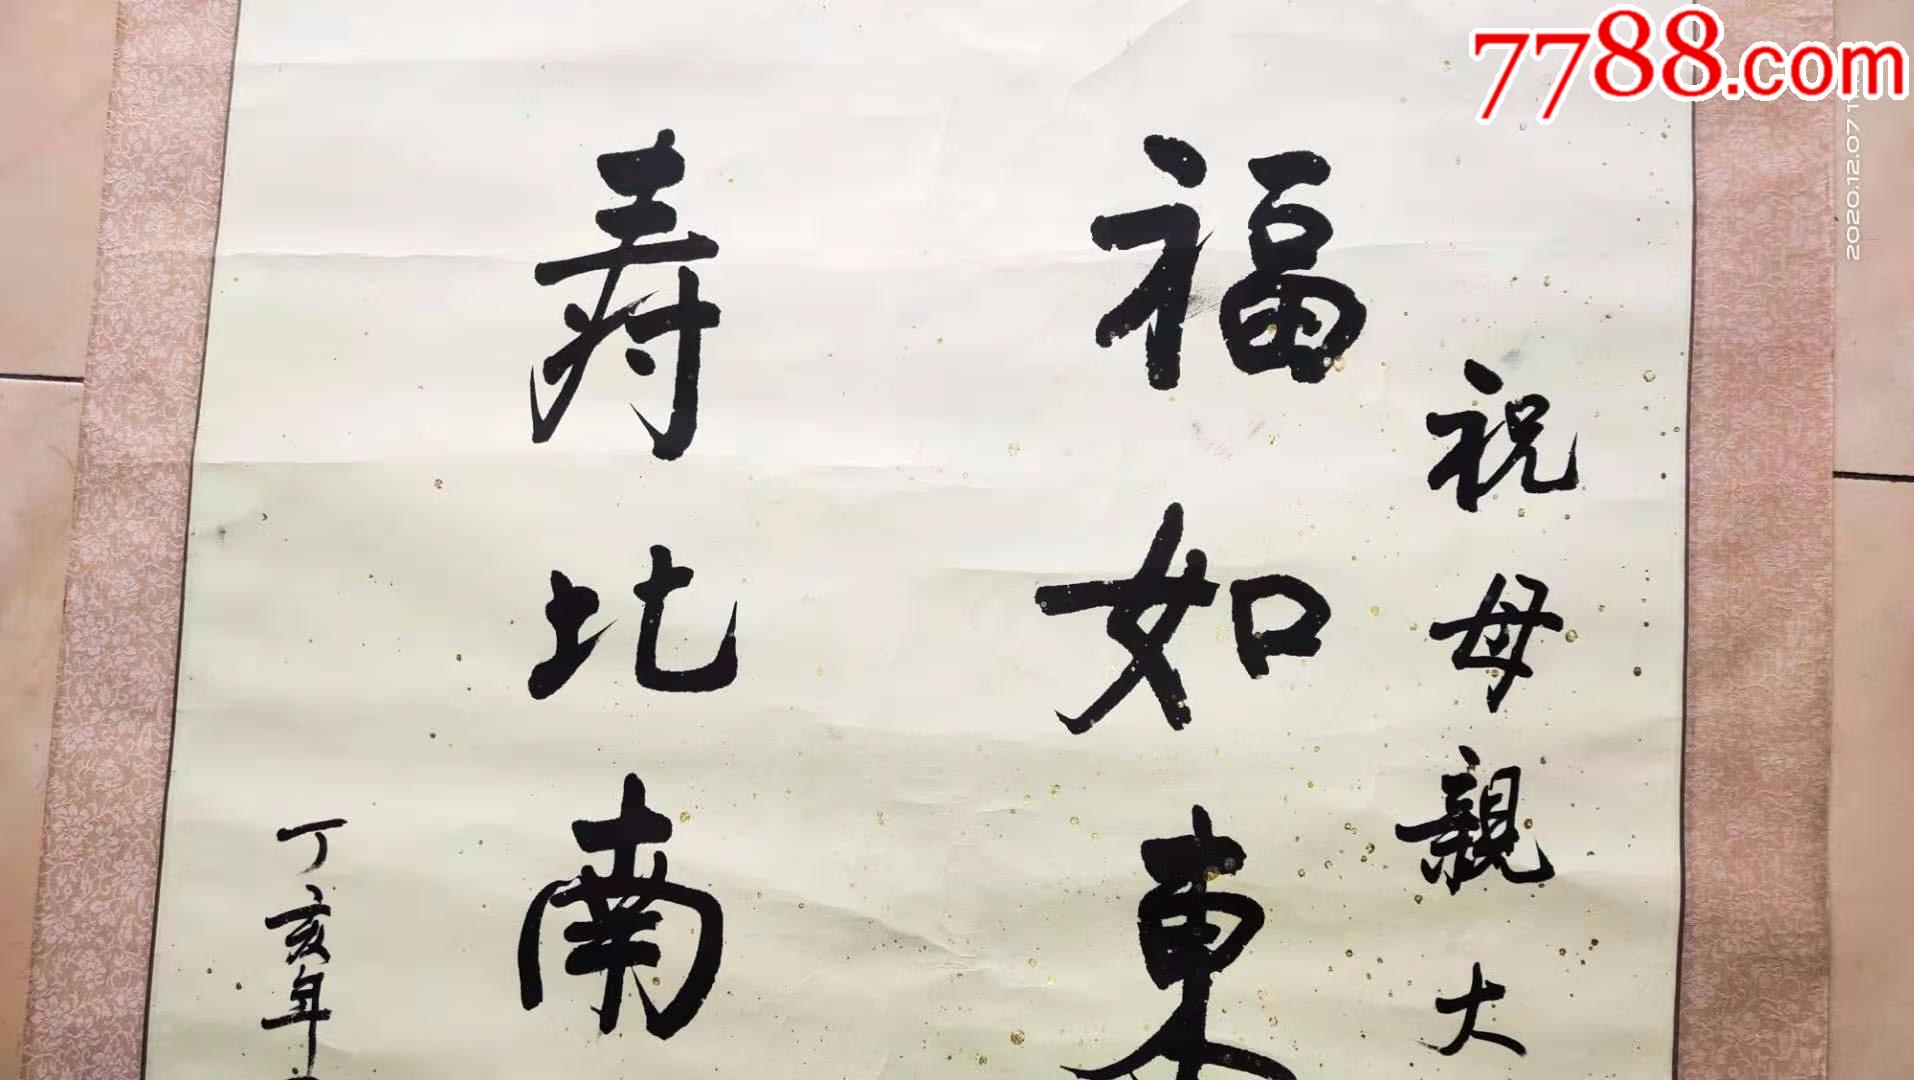 7788.com
2020.12.07 1
祝母親大
福如東
寿比南
丁亥年